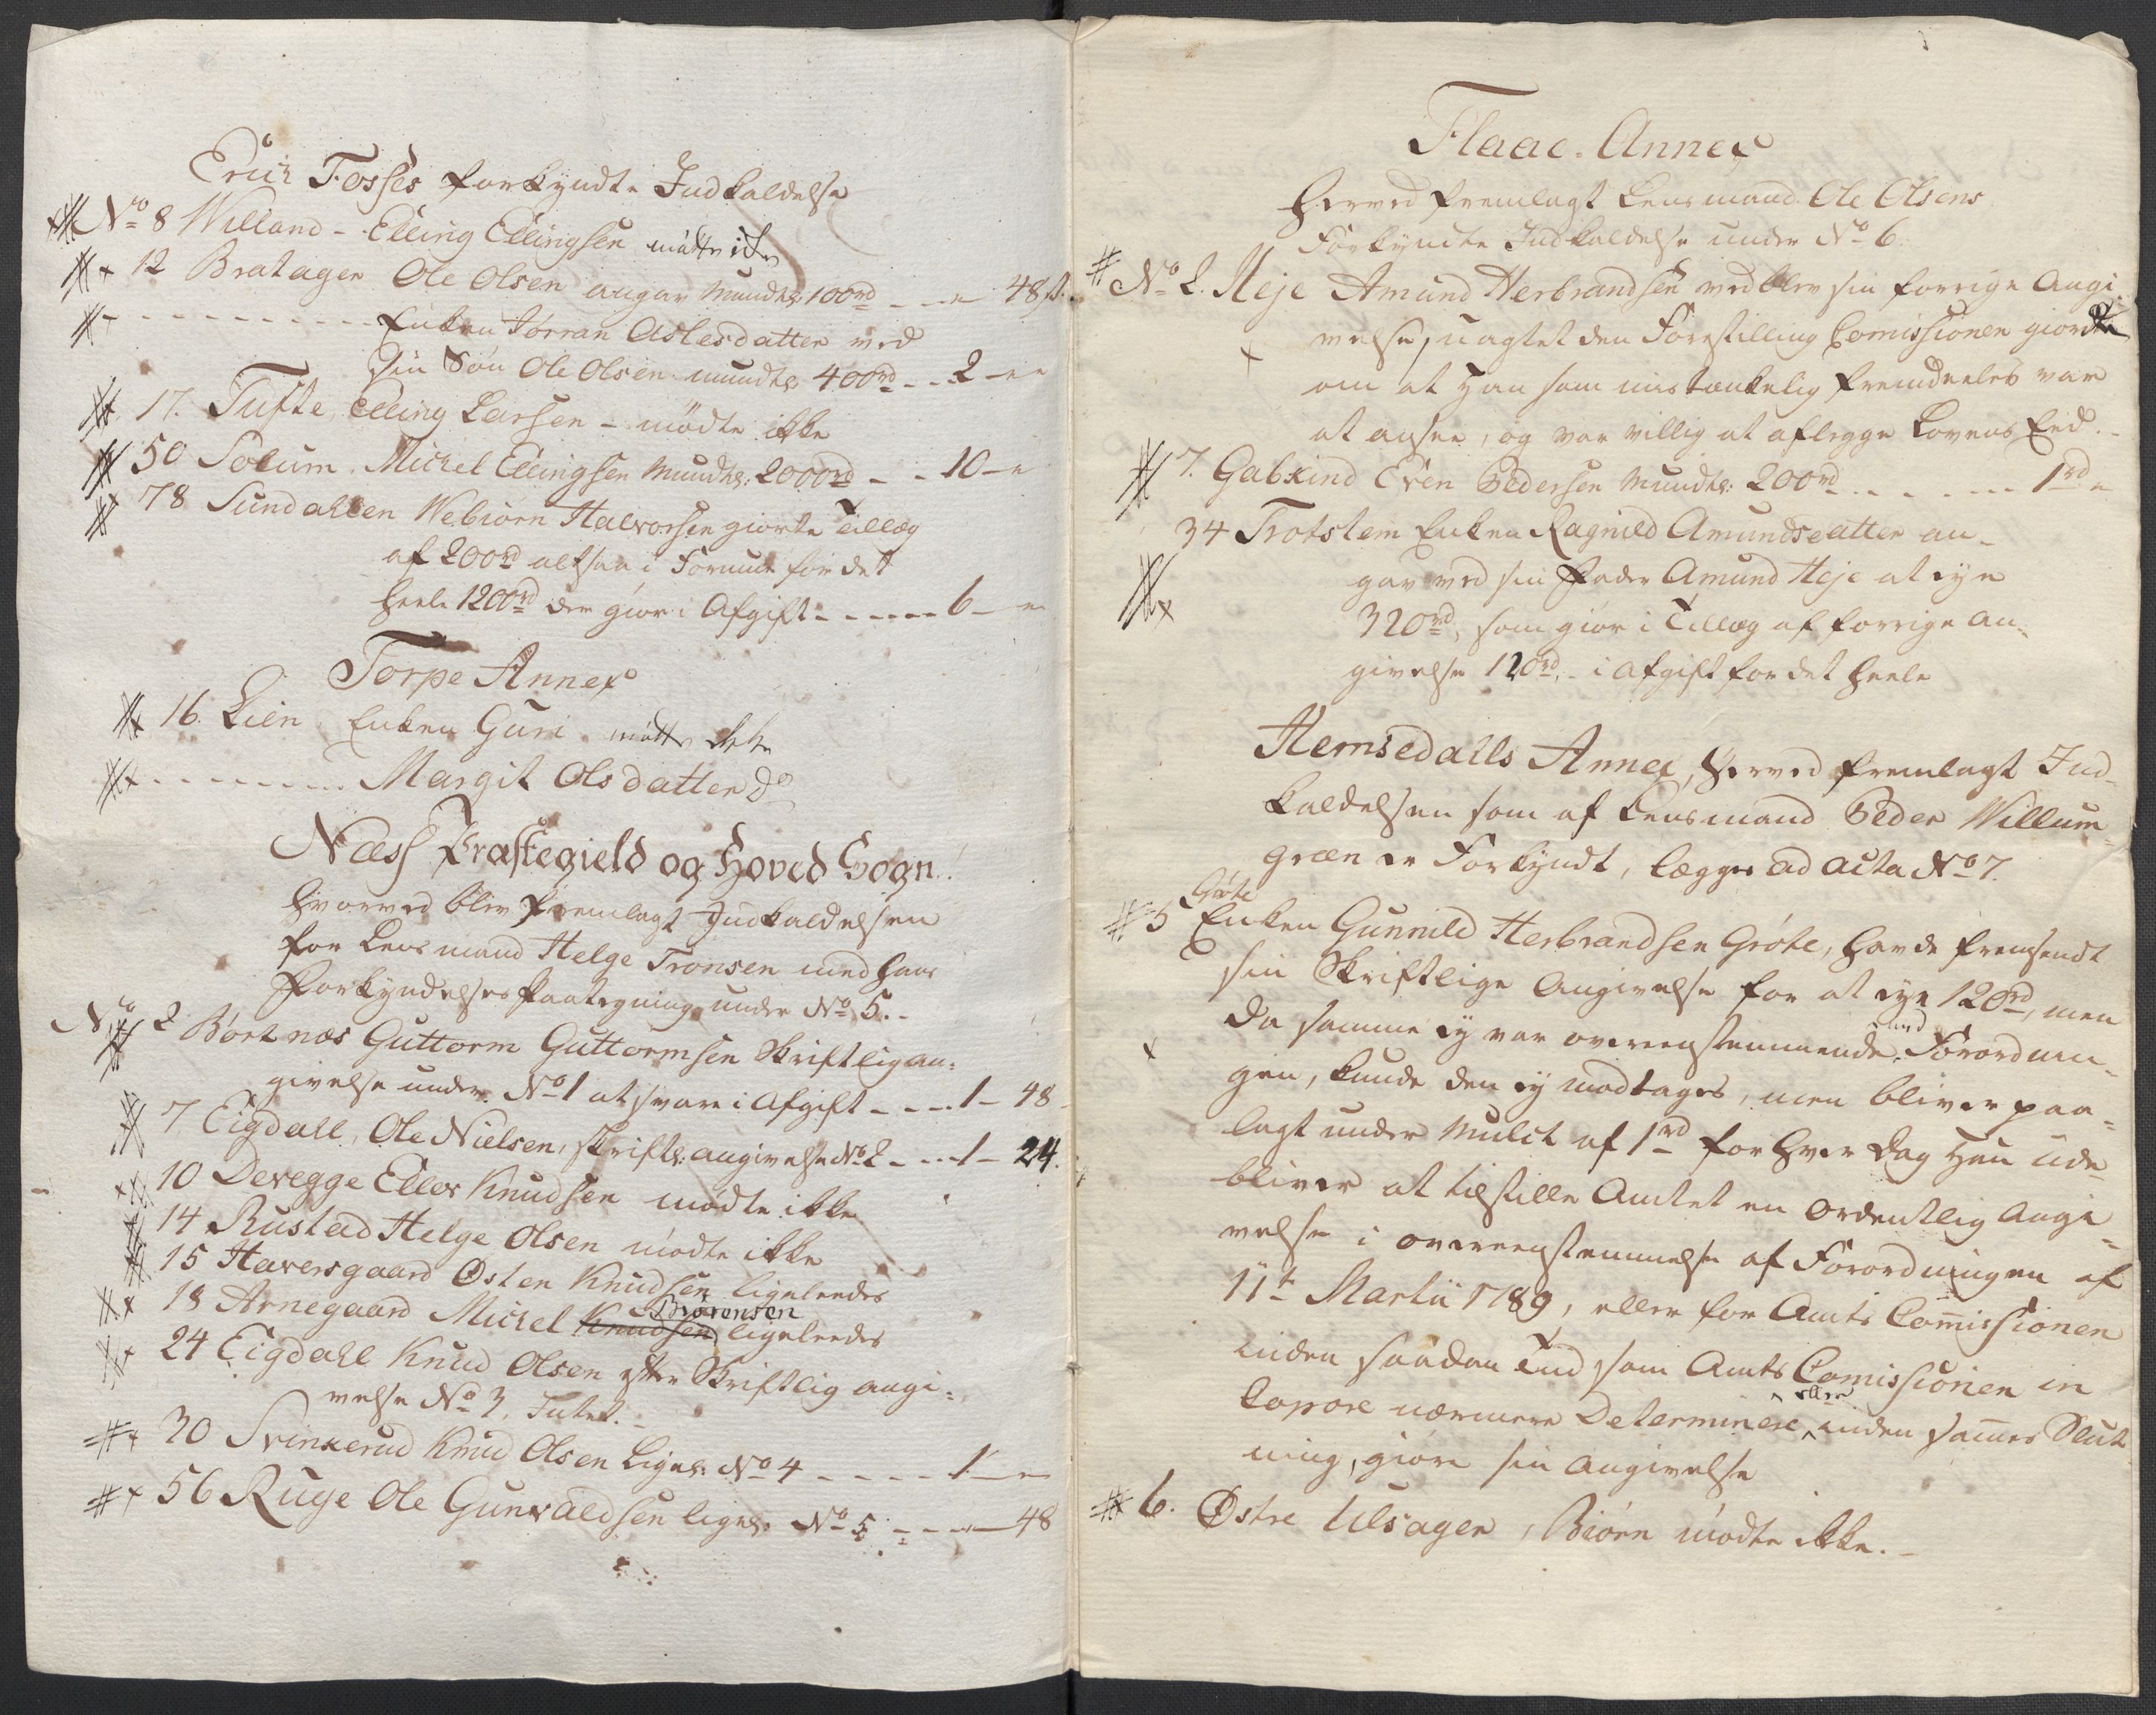 Erich Fosses forkyndte Indkaldelse
No 8 Willand - Elling Ellingsen mødte ikke
12 Bratager Ole Olsen angav Mundtl: 100rd - - " 48 s.
- - - - - - - Enken Jørran Aslesdatter ved
Sin Søn Ole Olsen mundtl: 400rd - - 2 - "
17. Tufte, Elling Larsen - mødte ikke
50 Solum. Michel Ellingsen Mundtl: 2000rd - - 10 - "
78 Sundallen Webiørn Halvorsen giorte Tillæg
af 200rd altsaa i Formue for det
heele 1200rd der giør i Afgift - - - - - 6 - "
Torpe Annex
16. Lien Enken Guri mødte ikke
- - - - - - - Margit Olsdatter do
Næss Præstegield og Hoved Sogn.
hvorved blev fremlagt Indkaldelsen
for Lensmand Helge Tronsen med hans
Forkyndelses Paategning under No 5.-
No 2 Bortnæs Guttorm Guttormsen Skriftlig an-
givelse under No 1 at svare i Afgift - - - 1 - 48
7 Eigdall, Ole Nielsen, skriftl: angivelse No 2 - - - 1 - 24.
10 Deregge Edler Knudsen mødte ikke
14 Rustad Helge Olsen mødte ikke
15 Haversgaard Østen Knudsen ligeleedes
18 Arnegaard Michel Knudsen Biørensen ligeleedes
24 Eigdall Knud Olsen efter Skriftlig angi-
velse No 3. Intet.-
30 Svinkerud Knud Olsen Ligel: No 4 - - - - 1 - "
56 Ruge Ole Gunvaldsen ligel: No 5 - - - " - 48
Flaae. Annex
Herved fremlagt Lensmand Ole Olsens
Forkyndte Indkaldelse under No 6
No 2. Heje Amund Herbrandsen ved blev sin forrige Angi-
velse, uagtet den Forestilling Comissionen giorde
om at Han som mistænkelig fremdeeles var
at ansee, og var villig at aflegge Lovens Eed.-
7. Gabkind Even Pedersen Mundtl: 200rd - - - - - 1rd "
34 Trotstem Enken Ragnild Amundsdatter an-
gav ved sin Fader Amund Heje at eye
320rd, som giør i Tillæg af forrige an-
givelse 120rd.- i Afgift for det heele
Hemsedalls Annex, Herved fremlagt Ind-
kaldelsen som af Lensmand Peder Willum-
græn er Forkyndt, lægges ad acta No 7.
Grøte
5 Enken Gunnild Herbrandsen Grøte, havde fremsendt
sin Skriftlige Angivelse for at eye 120rd, men
da samme ey var overeenstemmende med Forordnin-
gen, kunde den ey modtages, men bliver paa-
lagt under Mulct af 1rd for hver Dag Hun ude-
bliver at tilstille Amtet en ordentlig Angi-
velse i overeenstemmelse af Forordningen af
11te Martii 1789, eller for Amts Comissionen
inden saadan Tiid som Amts Comissionen in
Copore nærmere Determinere, eller inden sammes Slut-
ning, giøre sin Angivelse
6. Østre Ulsager, Biørn mødte ikke.-